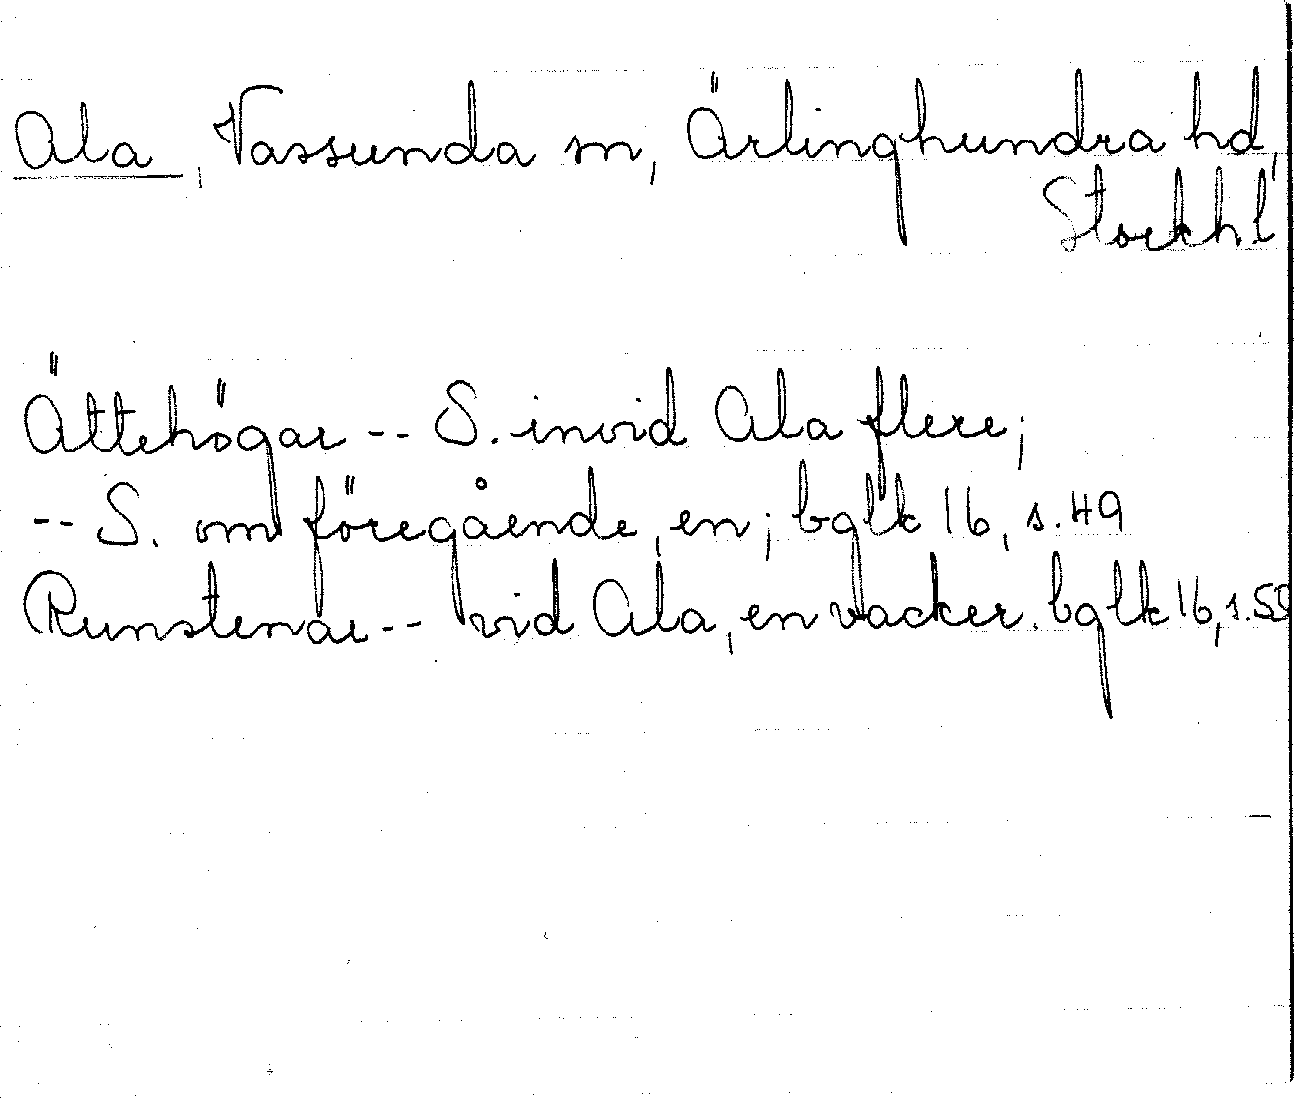 Ala, Vassunda sn, Ärlinghundra hd,
Stockh l
Ättehögar -- S. invid Ala flere;
-- S. om föregående, en; bglk 16, s. 49
Runstenar -- vid Ala, en vacker. bglk 16, s.